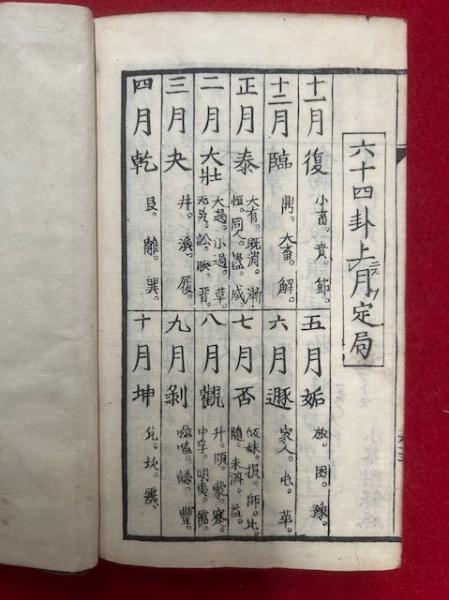 六十四卦上月定局
十一月復
小畜。賁。節。
十二月臨
鼎。大畜。解。
正月泰
大有。既済。漸
恒。同人。蠱。咸。
二月大壯
大過。小過。
无妄。訟。睽。晋。
三月夬
井。渙。履。
四月乾
艮。離。巽。
五月姤
旅。困。豫。
六月遯
家人。屯。革。
七月否
皈妹。損。師。比。
隨。未済。益。
八月觀
升。頤。蒙。蹇。
中孚。明夷。
九月剝
噬嗑。謙。豐。
十月坤
兌。坎。震。